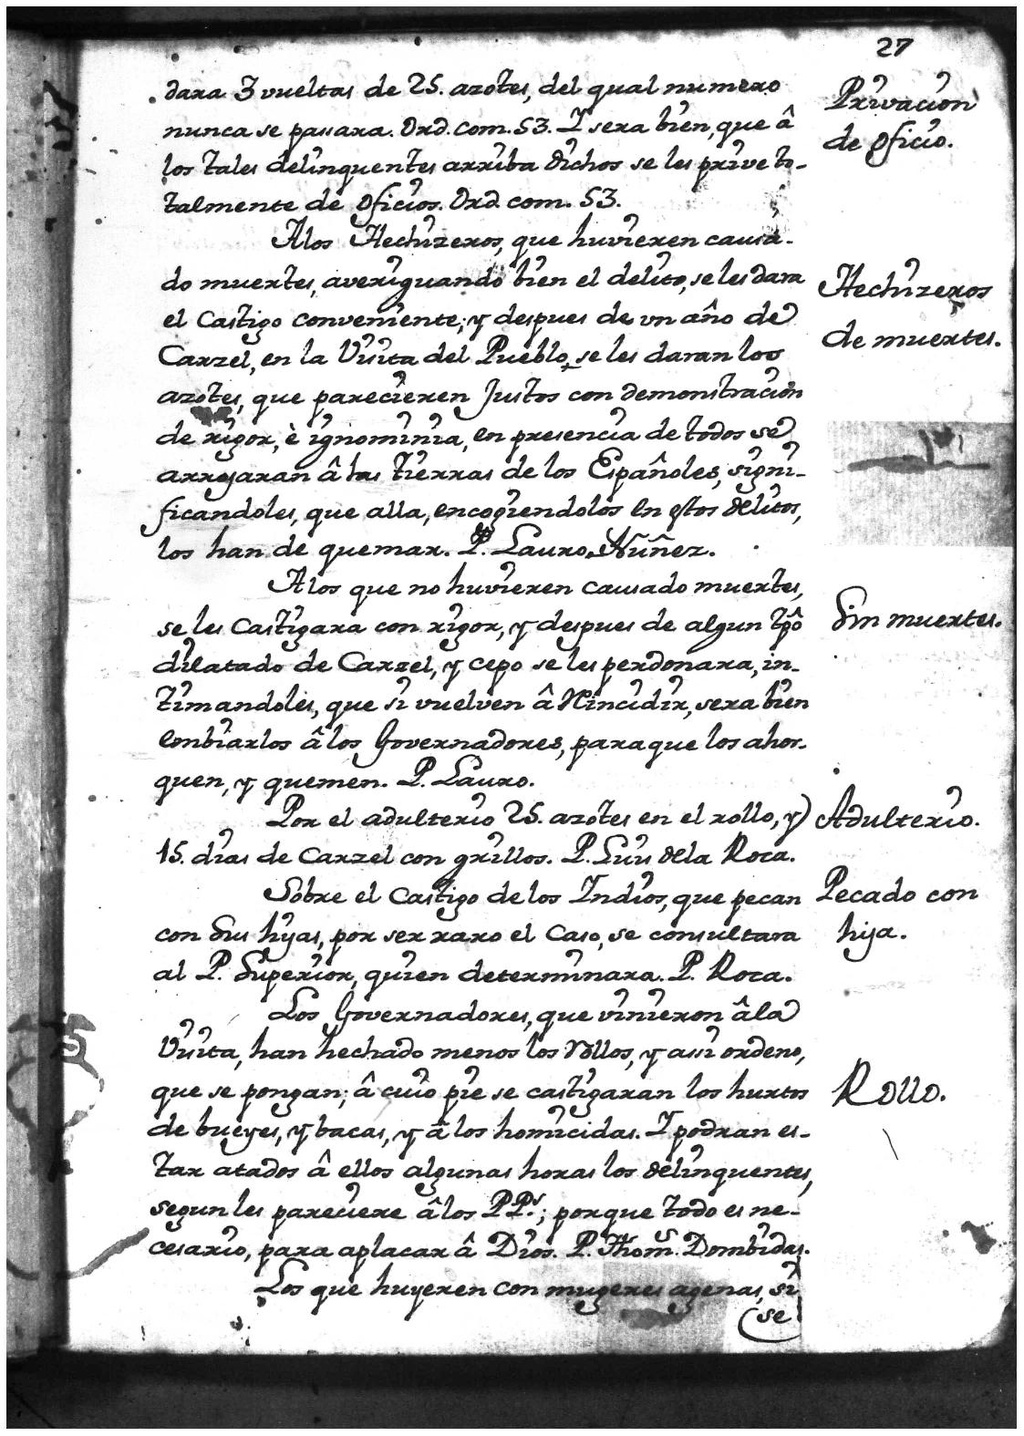 27
dara 3 vueltas de 25. azotes, del qual numero
nunca se passara. Ord. com. 53. I sera bien, que â
los tales delinquentes arriba dichos se les prive to-
talmente de oficios. Ord. com. 53.
Privacion
de oficio.
Alos Hechizeros, que huvieren causa-
do muertes, averiguando bien el delito, se les dara
el Castigo conveniente; y despues de vn año de
Carzel, en la Visita del Pueblo, se les daran los
azotes, que parecieren justos con demonstracion
de rigor, è ignominia, en presencia de todos se
arrojaran â las tierras de los Españoles, signi-
ficandoles, que alla, encogiendolos en estos delitos,
los han de quemar. P. Lauro Nuñez.
Hechizeros
de muertes.
Alos que no huvieren causado muertes,
se les Castigara con rigor, y despues de algun tpô
dilatado de Carzel, y cepo se les perdonara, in-
timandoles, que si vuelven â Rincidir, sera bien
embiarlos âlos Governadores, paraque los ahor-
quen, y quemen. P. Lauro.
Sin muertes.
Por el adulterio 25. azotes en el rollo, y
15. dias de Carzel con grillos. P. Luis dela Roca.
Adulterio.
Sobre el Castigo delos Indios, que pecan
con sus hijas, por ser raro el Caso, se consultara
al P. Superior, quien determinara. P. Roca.
Pecado con
hija.
Los Governadores, que vinieron âla
Visita, han hechado menos los Rollos, y assi ordeno,
que se pongan; â cuio pie se castigaran los hurtos
de bueyes, y bacas, y â los homicidas. I podran es-
tar atados â ellos algunas horas los delinquentes,
segun les pareciere âlos PPs.; porque todo es ne-
cesario, para aplacar â Dios. P. Thoms. Dombidas.
Rollo.
Los que huyeren con mugeres agenas, si
se